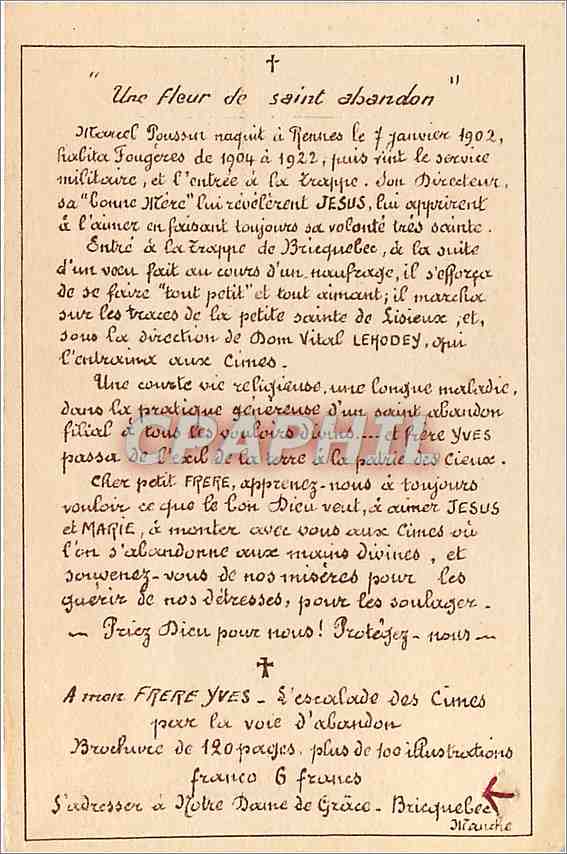 "Une fleur de saint abandon"
Marcel Poussin naquit à Rennes le 7 janvier 1902,
habita Fougères de 1904 à 1922, puis vint le service
militaire, et l'entrée à la Trappe. Son Directeur,
sa "bonne Mère" lui révélèrent JESUS, lui apprirent
à l'aimer en faisant toujours sa volonté très sainte.
Entré à la Trappe de Bricquebec, à la suite
d'un voeu fait au cours d'un naufrage, il s'efforça
de se faire "tout petit" et tout aimant; il marcha
sur les traces de la petite sainte de Lisieux, et,
sous la direction de Dom Vital LEHODEY, qui
l'entraina aux Cimes.
Une courte vie religieuse, une longue maladie,
dans la pratique généreuse d'un saint abandon
filial à tous les vouloirs divins.... et frère YVES
passa de l'exil de la terre à la patrie des Cieux.
Cher petit FRERE, apprenez-nous à toujours
vouloir ce que le bon Dieu veut, à aimer JESUS
et MARIE, à monter avec vous aux Cimes où
l'on s'abandonne aux mains divines, et
souvenez-vous de nos misères pour les
guérir de nos détresses, pour les soulager.
~ Priez Dieu pour nous! Protégez-nous ~
A mon FRERE YVES - L'escalade des Cimes
par la voie d'abandon
Brochure de 120 pages, plus de 100 illustrations
franco 6 francs
S'adresser à Notre Dame de Grâce - Bricquebec
Manche
CPAPHIL